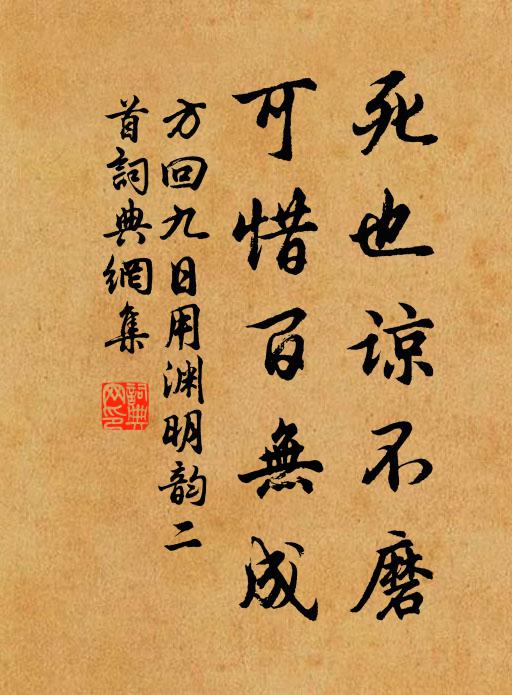 死也谅不磨
可惜百無成
方回九日用渊明韵二
首詞典網集
詞典网印